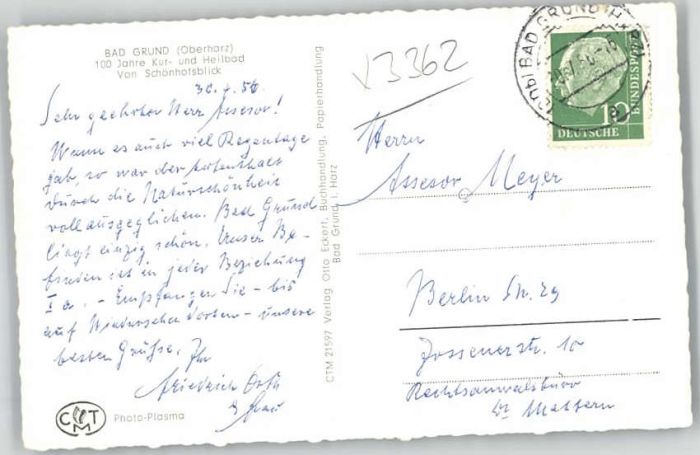 BAD GRUND (Oberharz)
100 Jahre Kur- und Heilbad
Von Schönhofsblick
30.7.56
Sehr geehrter Herr Assessor!
Wenn es auch viel Regentage
gab, so war aber Aufenthalt
durch die Naturschönheit
voll ausgeglichen. Bad Grund
liegt einzig schön. Unser Be-
finden ist in jeder Beziehung
I a. - Empfangen Sie - bis
auf Wiedersehen dorten - unsere
besten Grüße. Ihr
Friedrich
& Frau
CMT
Photo-Plasma
CTM 21597 Verlag Otto Eckert, Buchhandlung, Papierhandlung
Bad Grund i. Harz
V3362
BAD GRUND (HARZ)
10
DEUTSCHE
BUNDESPOST
Herrn
Assesor Meyer
Berlin SW. 29
Zossenerstr. 10
Rechtsanwaltsbüro
Dr. Mattern